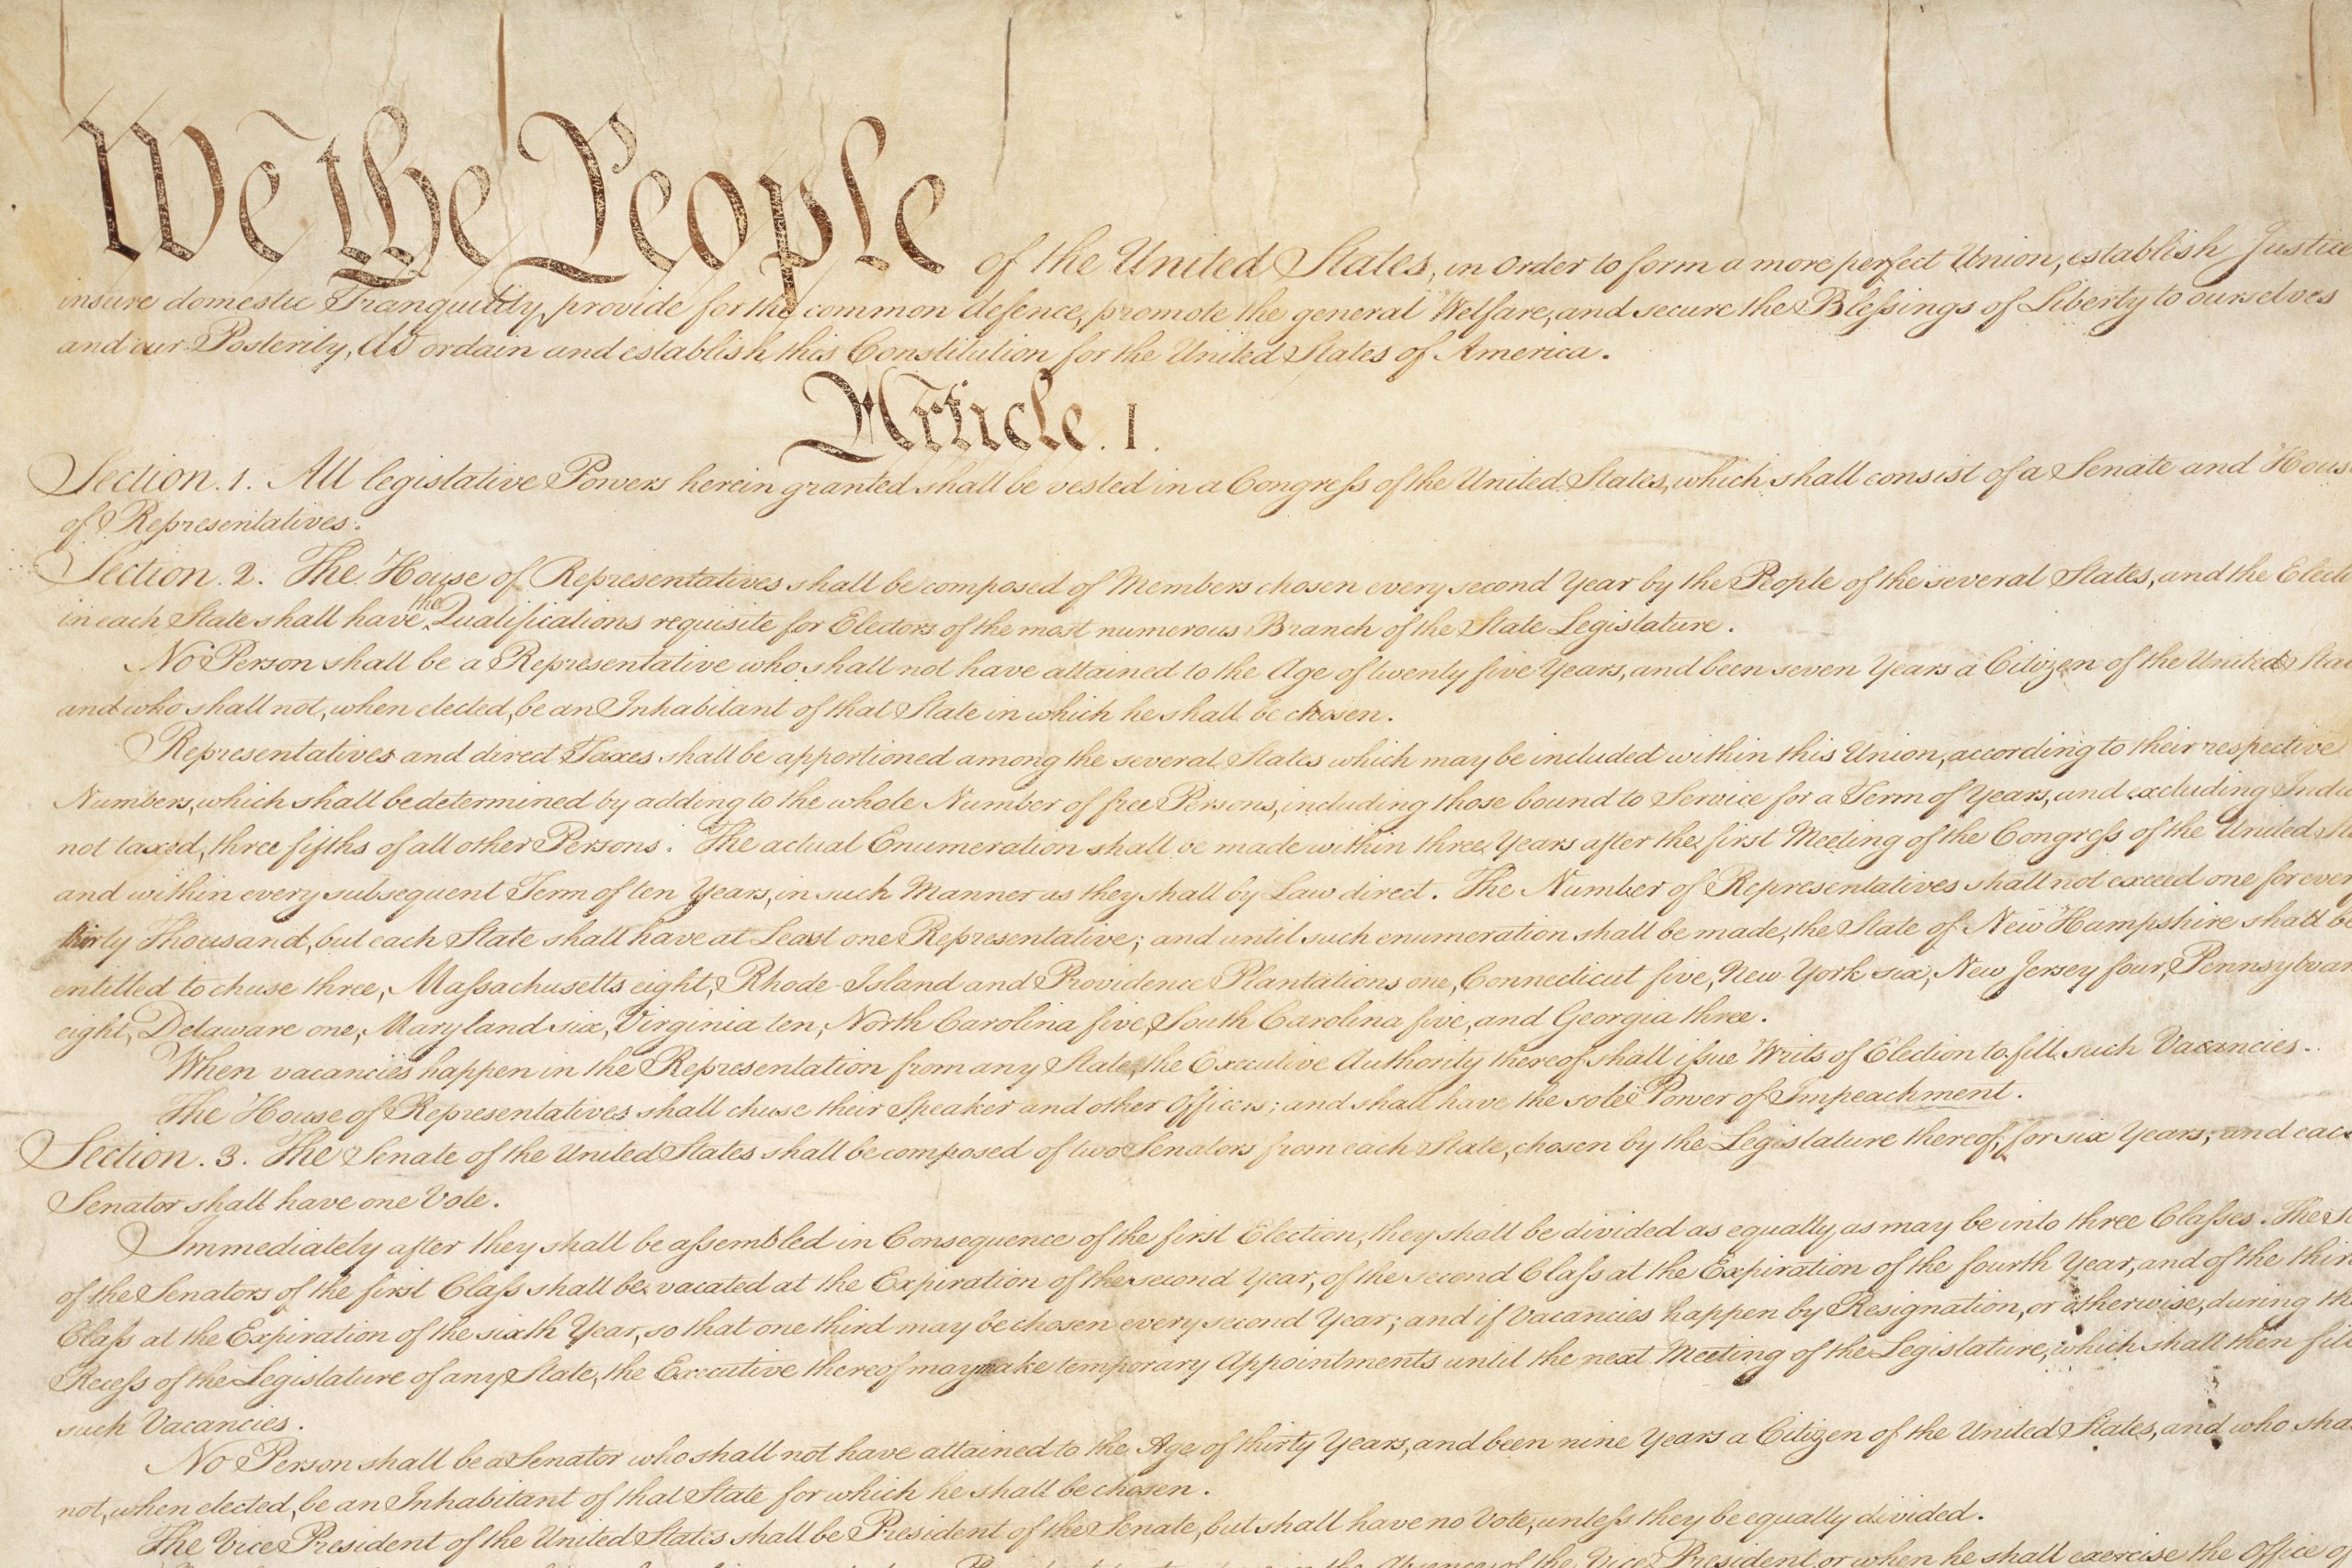 We the People of the United States, in Order to form a more perfect Union, establish Justice
insure domestic Tranquility, provide for the common defence, promote the general Welfare, and secure the Blessings of Liberty to ourselves
and our Posterity, do ordain and establish this Constitution for the United States of America.
Article. I.
Section. 1. All legislative Powers herein granted shall be vested in a Congress of the United States, which shall consist of a Senate and Hous
of Representatives.
Section. 2. The House of Representatives shall be composed of Members chosen every second Year by the People of the several States, and the Elect
in each State shall have the Qualifications requisite for Electors of the most numerous Branch of the State Legislature.
No Person shall be a Representative who shall not have attained to the Age of twenty five Years, and been seven Years a Citizen of the United Sta
and who shall not, when elected, be an Inhabitant of that State in which he shall be chosen.
Representatives and direct Taxes shall be apportioned among the several States which may be included within this Union, according to their respective
Numbers, which shall be determined by adding to the whole Number of free Persons, including those bound to Service for a Term of Years, and excluding Indi
not taxed, three fifths of all other Persons. The actual Enumeration shall be made within three Years after the first Meeting of the Congress of the United Sta
and within every subsequent Term of ten Years, in such Manner as they shall by Law direct. The Number of Representatives shall not exceed one for every
thirty Thousand, but each State shall have at Least one Representative; and until such enumeration shall be made, the State of New Hampshire shall be
entitled to chuse three, Massachusetts eight, Rhode-Island and Providence Plantations one, Connecticut five, New-York six, New Jersey four, Pennsylvan
eight, Delaware one, Maryland six, Virginia ten, North Carolina five, South Carolina five, and Georgia three.
When vacancies happen in the Representation from any State, the Executive Authority thereof shall issue Writs of Election to fill such Vacancies.
The House of Representatives shall chuse their Speaker and other Officers; and shall have the sole Power of Impeachment.
Section. 3. The Senate of the United States shall be composed of two Senators from each State, chosen by the Legislature thereof, for six Years; and each
Senator shall have one Vote.
Immediately after they shall be assembled in Consequence of the first Election, they shall be divided as equally as may be into three Classes. The Se
of the Senators of the first Class shall be vacated at the Expiration of the second Year, of the second Class at the Expiration of the fourth Year, and of the thir
Class at the Expiration of the sixth Year, so that one third may be chosen every second Year; and if Vacancies happen by Resignation, or otherwise, during the
Recess of the Legislature of any State, the Executive thereof may make temporary Appointments until the next Meeting of the Legislature, which shall then fill
such Vacancies.
No Person shall be a Senator who shall not have attained to the Age of thirty Years, and been nine Years a Citizen of the United States, and who sha
not, when elected, be an Inhabitant of that State for which he shall be chosen.
The Vice President of the United States shall be President of the Senate, but shall have no Vote, unless they be equally divided.
the Absence of the Vice President, or when he shall exercise the Office of